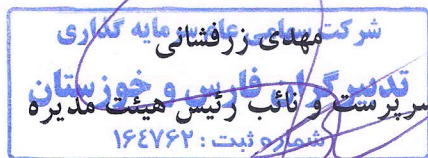 شرکت سهامی عام سرمایه گذاری
مهدی زرفشانی
تدبیرگران فارس و خوزستان
سرپرست و نائب رئیس هیئت مدیره
شماره ثبت : ۱۶٤٧٦٢